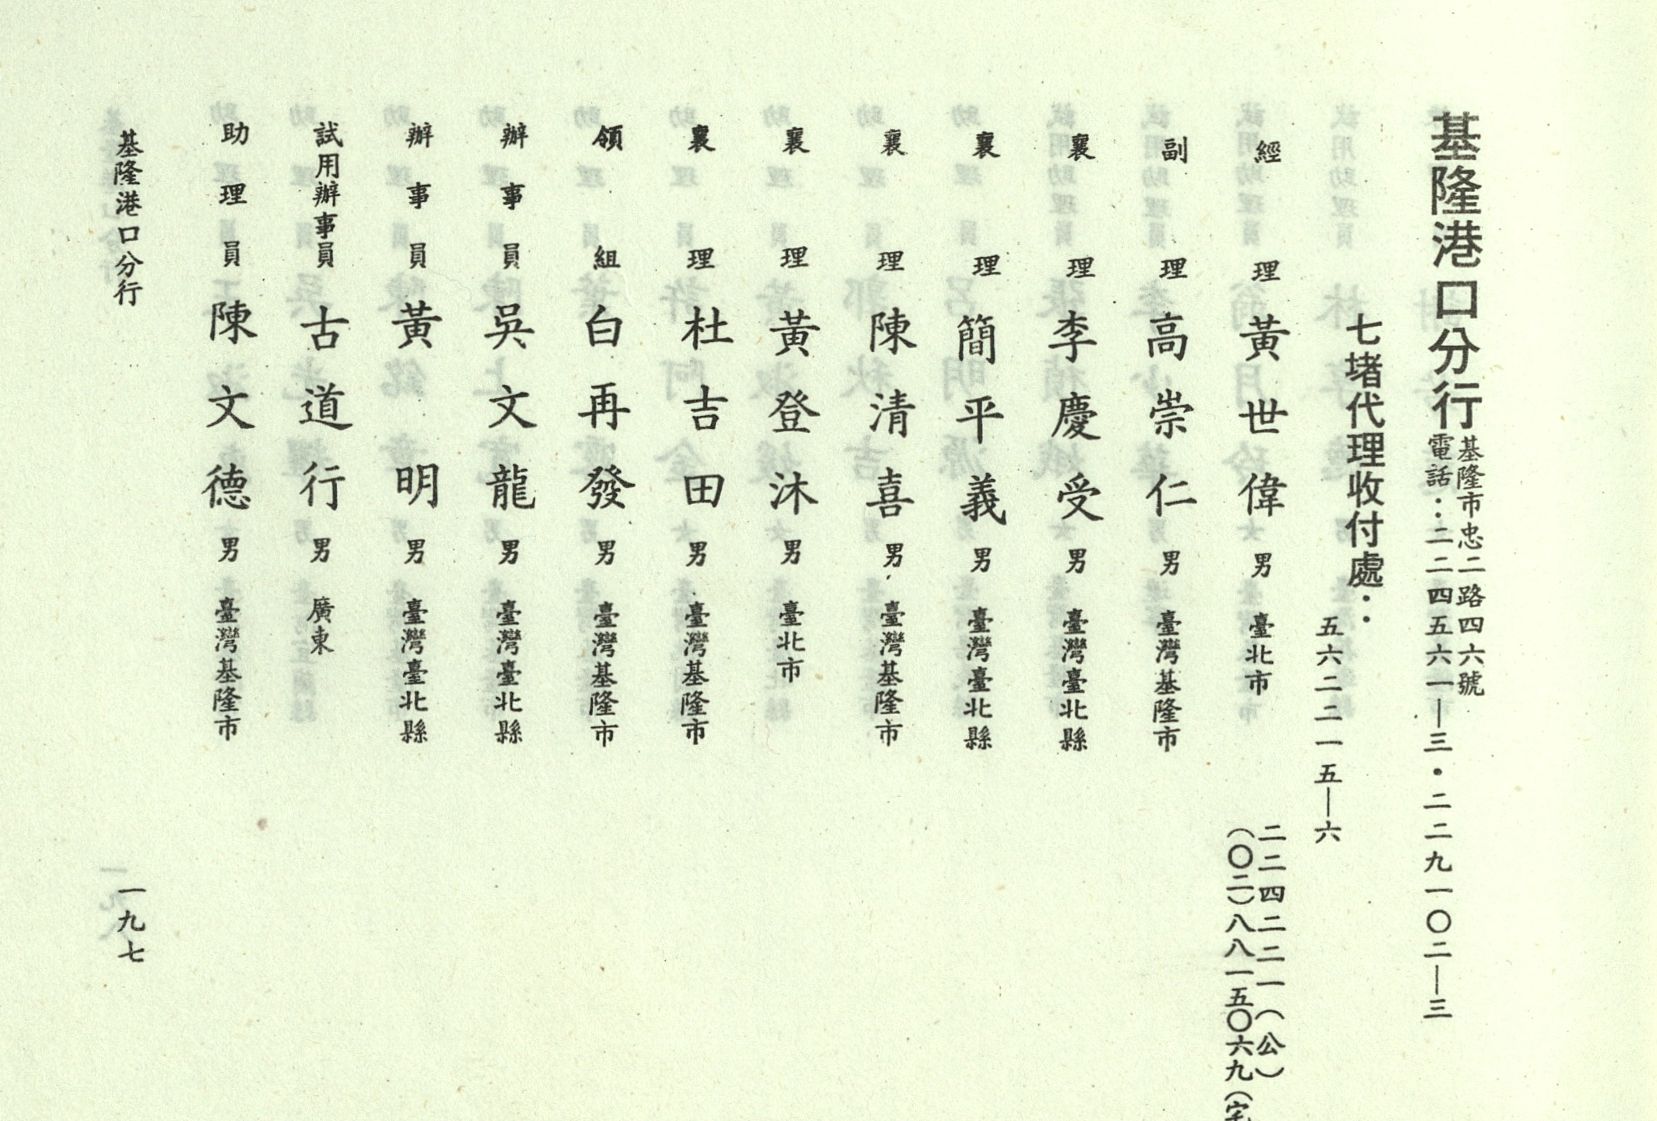 基隆港口分行
基隆市忠二路四六號
電話：二二四五六一—三・二二九一〇二—三
七堵代理收付處：
五六二二一五—六
經理 黃世偉 男 臺北市
二二四二二一（公）
（〇二）八八一五〇六九（宅
副理 高崇仁 男 臺灣基隆市
襄理 李慶受 男 臺灣臺北縣
襄理 簡平義 男 臺灣臺北縣
襄理 陳清喜 男 臺灣基隆市
襄理 黃登沐 男 臺北市
襄理 杜吉田 男 臺灣基隆市
領組 白再發 男 臺灣基隆市
辦事員 吳文龍 男 臺灣臺北縣
辦事員 黃明 男 臺灣臺北縣
試用辦事員 古道行 男 廣東
助理員 陳文德 男 臺灣基隆市
基隆港口分行
一九七